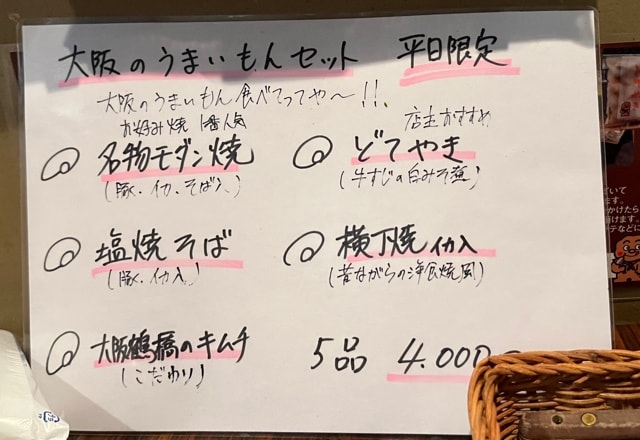 大阪のうまいもんセット 平日限定
大阪のうまいもん食べてってや〜!!
お好み焼 1番人気
名物モダン焼
(豚、イカ、そば入)
店主おすすめ
どてやき
(牛すじの白みそ煮)
塩焼そば
(豚、イカ入)
横丁焼イカ入
(昔ながらの洋食焼風)
大阪鶴橋のキムチ
(こだわり)
5品 4.000